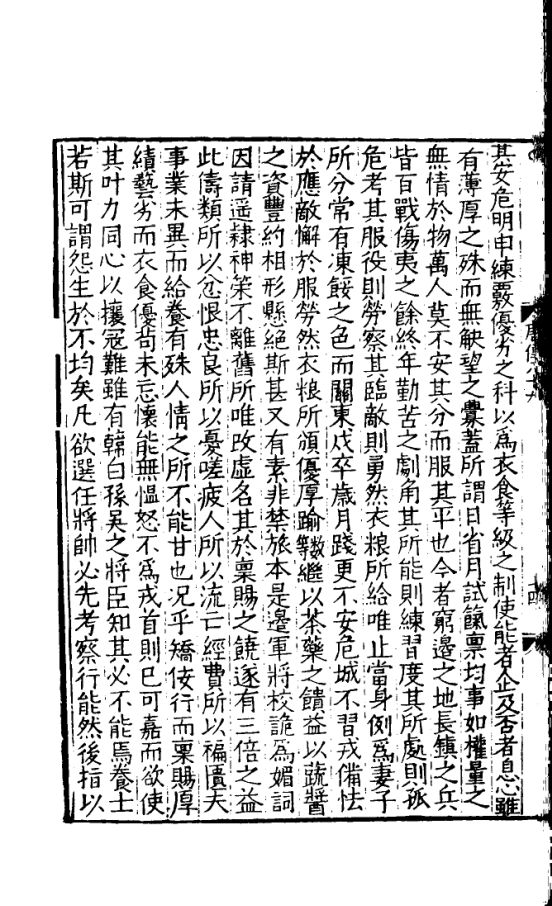 其安危明申練覈優劣之科以爲衣食等級之制使能者企及否者息心雖
有薄厚之殊而無觖望之釁蓋所謂日省月試餼稟均事如權量之
無情於物萬人莫不安其分而服其平也今者窮邊之地長鎮之兵
皆百戰傷夷之餘終年勤苦之劇角其所能則練習度其所處則孤
危考其服役則勞察其臨敵則勇然衣粮所給唯止當身例爲妻子
所分常有凍餒之色而關東戍卒歲月踐更不安危城不習戎備怯
於應敵懈於服勞然衣粮所頒優厚踰數繼以茶藥之饋益以蔬醬
之資豐約相形懸絕斯甚又有素非禁旅本是邊軍將校詭爲媚詞
因請遥隷神策不離舊所唯改虛名其於稟賜之饒遂有三倍之益
此儔類所以忿恨忠良所以憂嗟疲人所以流亡經費所以褊匱夫
事業未異而給養有殊人情之所不能甘也况乎矯佞行而稟賜厚
績藝劣而衣食優苟未忘懷能無愠怒不爲戎首則已可嘉而欲使
其叶力同心以攘寇難雖有韓白孫吳之將臣知其必不能焉養士
若斯可謂怨生於不均矣凡欲選任將帥必先考察行能然後指以